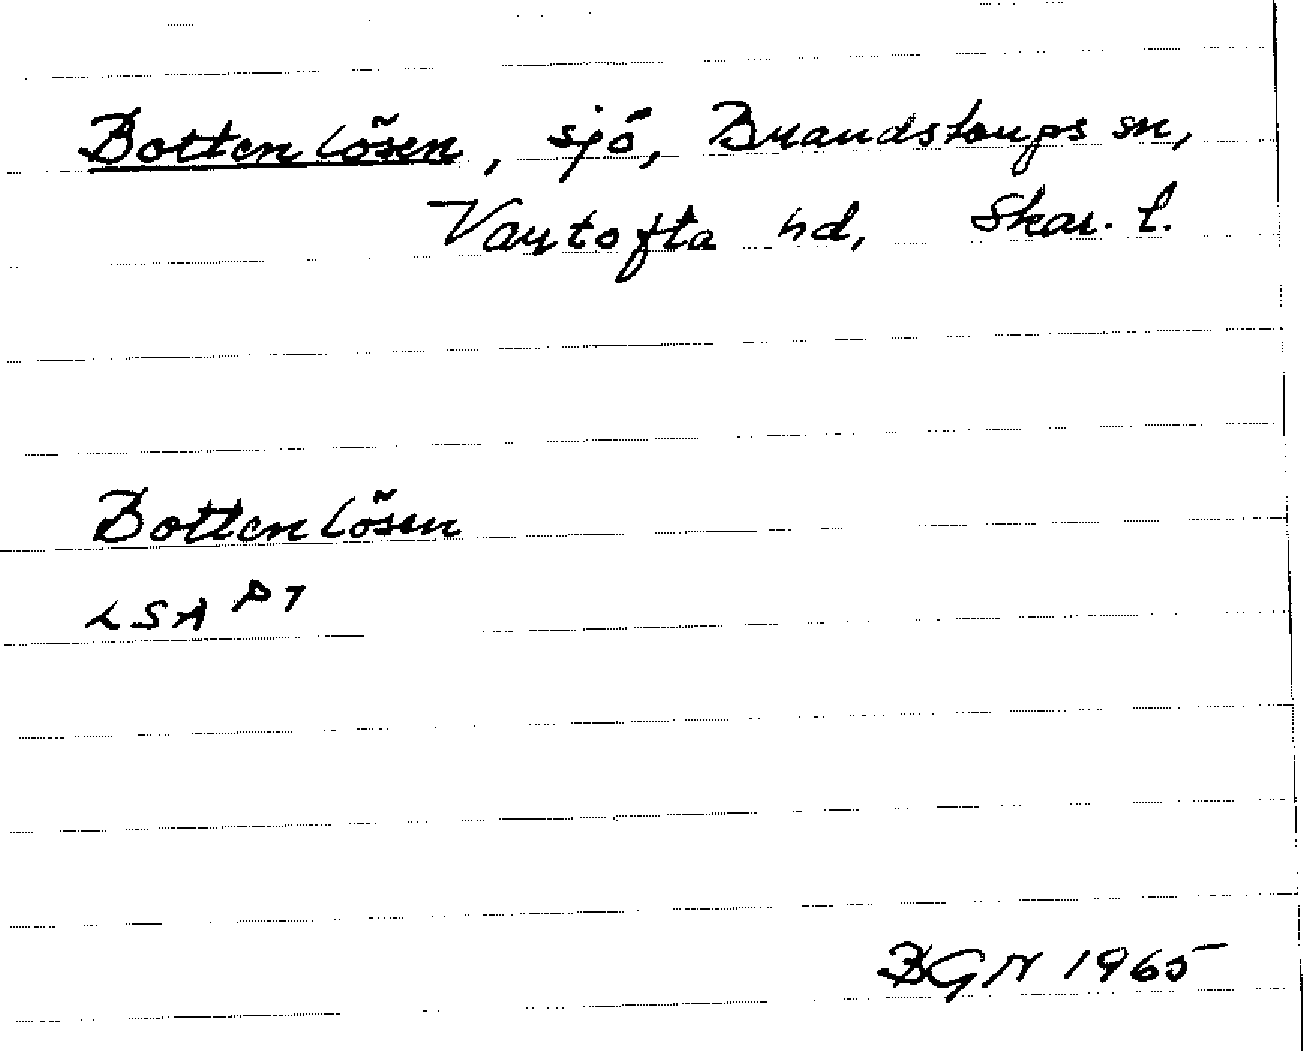 Bottenlösen, sjö, Brandstorps sn,
Vartofta hd, Skar. l.
Bottenlösen
LSA P7
BGN 1965